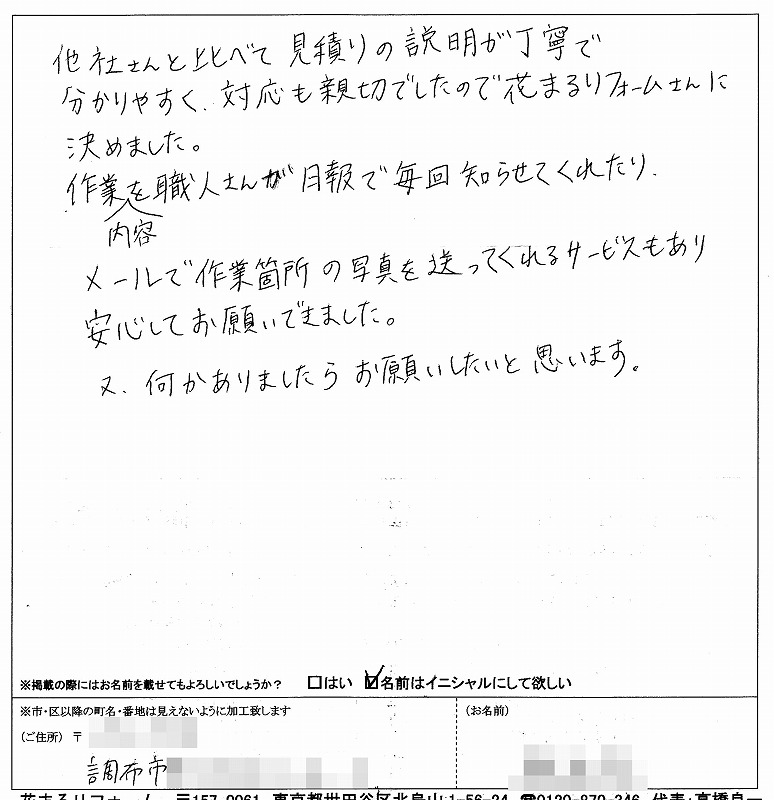 他社さんと比べて見積りの説明が丁寧で
分かりやすく、対応も親切でしたので花まるリフォームさんに
決めました。
作業内容を職人さんが日報で毎回知らせてくれたり、
メールで作業箇所の写真を送ってくれるサービスもあり
安心してお願いできました。
又、何かありましたらお願いしたいと思います。
※掲載の際にはお名前を載せてもよろしいでしょうか？ □はい ☑名前はイニシャルにして欲しい
※市・区以降の町名・番地は見えないように加工致します
(ご住所) 〒
調布市
(お名前)
花まるリフォーム 〒157-0061 東京都世田谷区北烏山1-56-24 ☎0120-870-246 代表:高橋良一